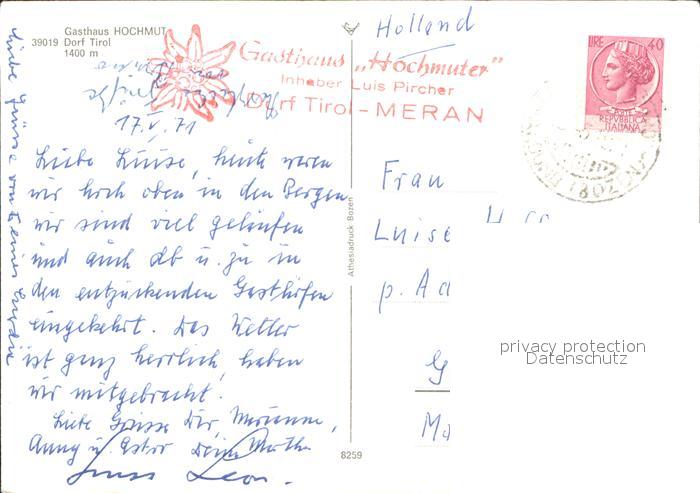 Gasthaus HOCHMUT
39019 Dorf Tirol
1400 m
Holland
Gasthaus „Hochmuter"
Inhaber Luis Pircher
Dorf Tirol - MERAN
LIRE 40
REPVBBLICA
ITALIANA
17.V.71
Liebe Luise, heute waren
wir hoch oben in den Bergen
wir sind viel gelaufen
und auch ab u. zu in
den entzückenden Gasthöfen
eingekehrt. Das Wetter
ist ganz herrlich, haben
wir mitgebracht.
Liebe Grüsse Dir, Marianne,
Anny u. Deine Martha
Leon.
Liebe Grüsse von
Athesiadruck Bozen
8259
Frau
Luise
p. Ad
G
Ma
privacy protection
Datenschutz